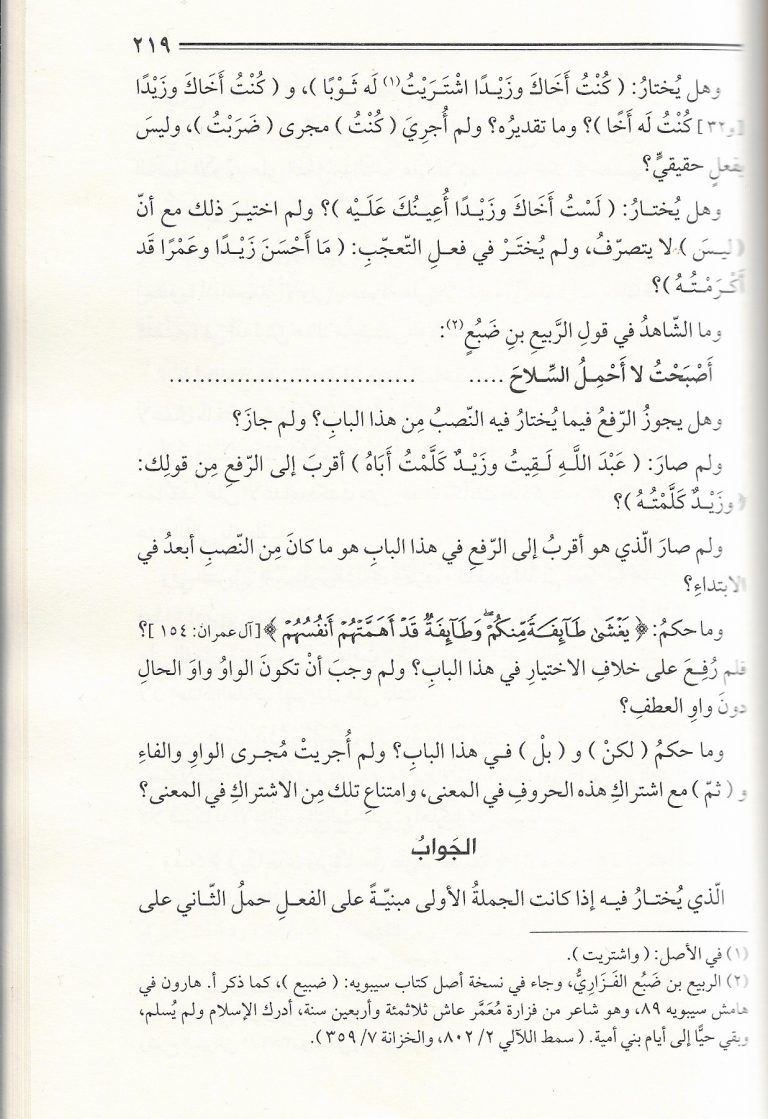 ٢١٩
وهل يُختارُ: ( كُنْتُ أَخَاكَ وزَيْدًا اشْتَرَيْتُ(١) لَه ثَوْبًا )، و ( كُنْتُ أَخَاكَ وزَيْدًا
[و٣٢] كُنْتُ لَه أَخًا )؟ وما تقديرُه؟ ولم أُجرِيَ ( كُنْتُ ) مجرى ( ضَرَبْتُ )، وليسَ
بفعلٍ حقيقيٍّ؟
وهل يُختارُ: ( لَسْتُ أَخَاكَ وزَيْدًا أُعِينُكَ عَلَيْه )؟ ولم اختيرَ ذلك مع أنّ
( ليسَ ) لا يتصرّفُ، ولم يُختَرْ في فعلِ التّعجّبِ: ( مَا أَحْسَنَ زَيْدًا وعَمْرًا قَد
أَكْرَمْتُهُ )؟
وما الشّاهدُ في قولِ الرَّبيعِ بنِ ضَبُعٍ(٢):
أَصْبَحْتُ لا أَحْمِلُ السِّلاحَ ..... ................................
وهل يجوزُ الرّفعُ فيما يُختارُ فيه النّصبُ مِن هذا البابِ؟ ولم جازَ؟
ولم صارَ: ( عَبْدَ اللَّهِ لَقِيتُ وزَيْدٌ كَلَّمْتُ أَبَاهُ ) أقربَ إلى الرّفعِ مِن قولِك:
( وزَيْدٌ كَلَّمْتُهُ )؟
ولم صارَ الّذي هو أقربُ إلى الرّفعِ في هذا البابِ هو ما كانَ مِن النّصبِ أبعدُ في
الابتداءِ؟
وما حكمُ: ﴿ يَغْشَىٰ طَآئِفَةً مِّنكُمْ ۖ وَطَآئِفَةٌ قَدْ أَهَمَّتْهُمْ أَنفُسُهُمْ ﴾ [آل عمران: ١٥٤ ]؟
فلم رُفِعَ على خلافِ الاختيارِ في هذا البابِ؟ ولم وجبَ أنْ تكونَ الواوُ واوَ الحالِ
دونَ واوِ العطفِ؟
وما حكمُ ( لكنْ ) و ( بلْ ) في هذا البابِ؟ ولم أُجريتْ مُجرى الواوِ والفاءِ
و ( ثمّ ) مع اشتراكِ هذه الحروفِ في المعنى، وامتناعِ تلك مِن الاشتراكِ في المعنى؟
الجَوابُ
الّذي يُختارُ فيه إذا كانت الجملةُ الأولى مبنيّةً على الفعلِ حملُ الثّاني على
(١) في الأصل: ( واشتريت ).
(٢) الربيع بن ضَبُع الفَزَارِيُّ، وجاء في نسخة أصل كتاب سيبويه: ( ضبيع )، كما ذكر أ. هارون في
هامش سيبويه ٨٩، وهو شاعر من فزارة مُعَمَّر عاش ثلاثمئة وأربعين سنة، أدرك الإسلام ولم يُسلم،
وبقي حيًّا إلى أيام بني أمية. ( سمط اللآلي ٢/ ٨٠٢، والخزانة ٧/ ٣٥٩ ).